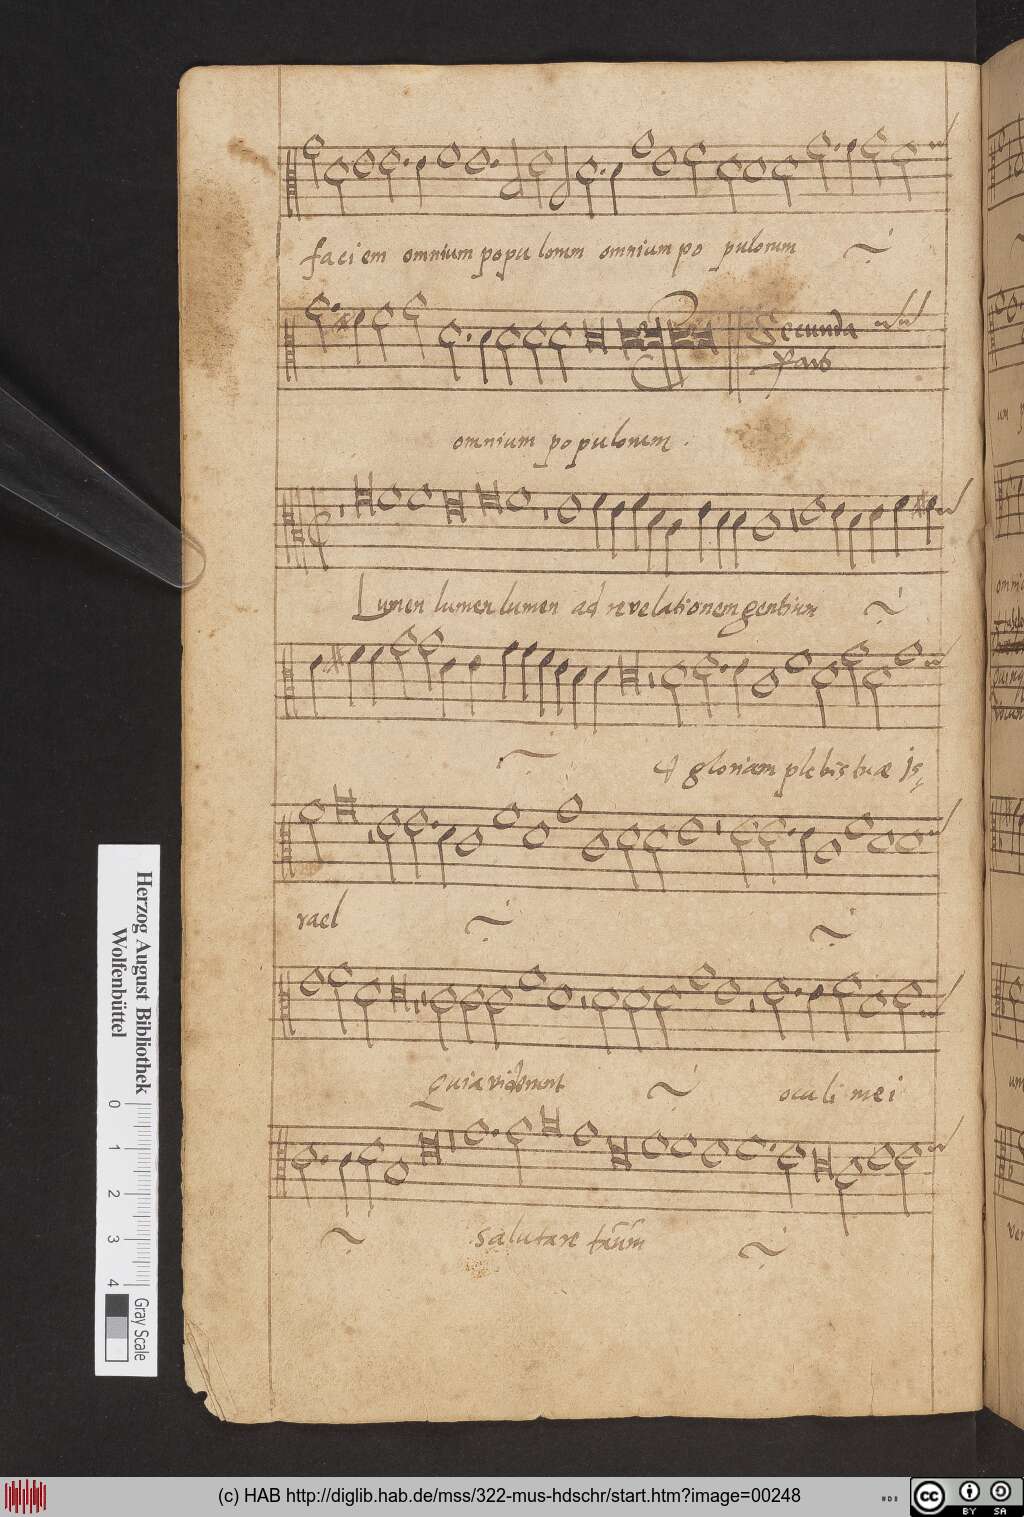 faciem omnium populorum omnium po pulorum
Secunda
Pars
omnium populorum.
Lumen lumen lumen ad revelationem gentium
Et gloriam plebis tuæ Is,
rael
Quia viderunt
oculi mei
salutare tuum
Herzog August Bibliothek
Wolfenbüttel
0 1 2 3 4
Gray Scale
(c) HAB http://diglib.hab.de/mss/322-mus-hdschr/start.htm?image=00248
cc BY SA